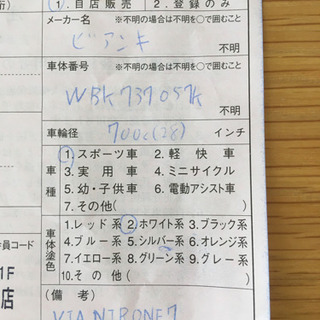 1. 自店販売 2. 登録のみ
メーカー名 ※不明の場合は不明を○で囲むこと
ビアンキ
不明
車体番号 ※不明の場合は不明を○で囲むこと
WBK737057K
不明
車輪径 700c(28) インチ
車種
1. スポーツ車 2. 軽快車
3. 実用車 4. ミニサイクル
5. 幼・子供車 6. 電動アシスト車
7. その他( )
車体塗色
1. レッド系 2. ホワイト系 3. ブラック系
4. ブルー系 5. シルバー系 6. オレンジ系
7. イエロー系 8. グリーン系 9. グレー系
10. その他( )
員コード
1F
店
(備考)
VIA NIRONE7